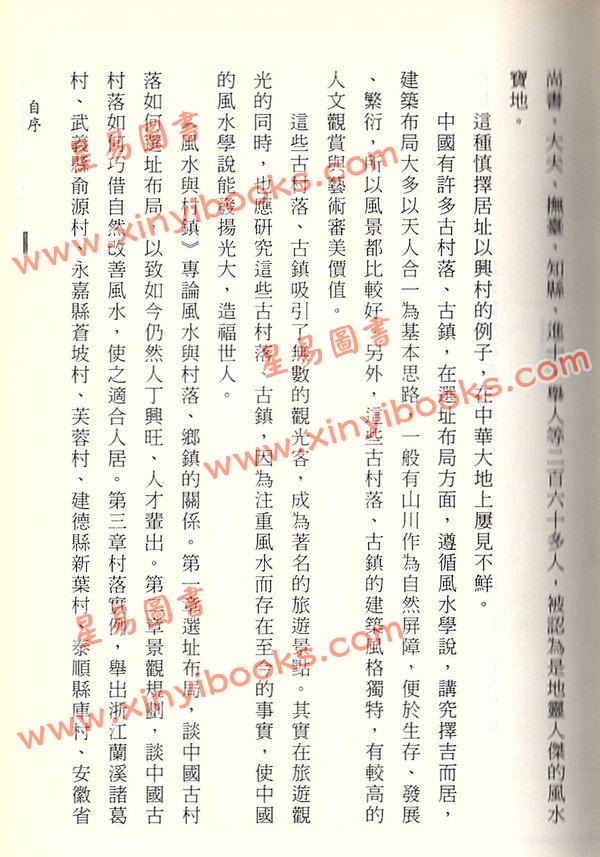 尚書、大夫、撫臺、知縣、進士、舉人等二百六十多人，被認為是地靈人傑的風水
寶地。
這種慎擇居址以興村的例子，在中華大地上屢見不鮮。
中國有許多古村落、古鎮，在選址布局方面，遵循風水學說，講究擇吉而居，
建築布局大多以天人合一為基本思路，一般有山川作為自然屏障，便於生存、發展
、繁衍，所以風景都比較好。另外，這些古村落、古鎮的建築風格獨特，有較高的
人文觀賞與藝術審美價值。
這些古村落、古鎮吸引了無數的觀光客，成為著名的旅遊景點。其實在旅遊觀
光的同時，也應研究這些古村落、古鎮，因為注重風水而存在至今的事實，使中國
的風水學說能發揚光大，造福世人。
《風水與村鎮》專論風水與村落、鄉鎮的關係。第一章選址布局，談中國古村
落如何選址布局，以致如今仍然人丁興旺、人才輩出。第二章景觀規劃，談中國古
村落如何巧借自然改善風水，使之適合人居。第三章村落實例，舉出浙江蘭溪諸葛
村、武義縣俞源村、永嘉縣蒼坡村、芙蓉村、建德縣新葉村、泰順縣庫村、安徽省
自序
星易圖書
www.xinyibooks.com
星易圖書
www.xinyibooks.com
星易圖書
www.xinyibooks.com